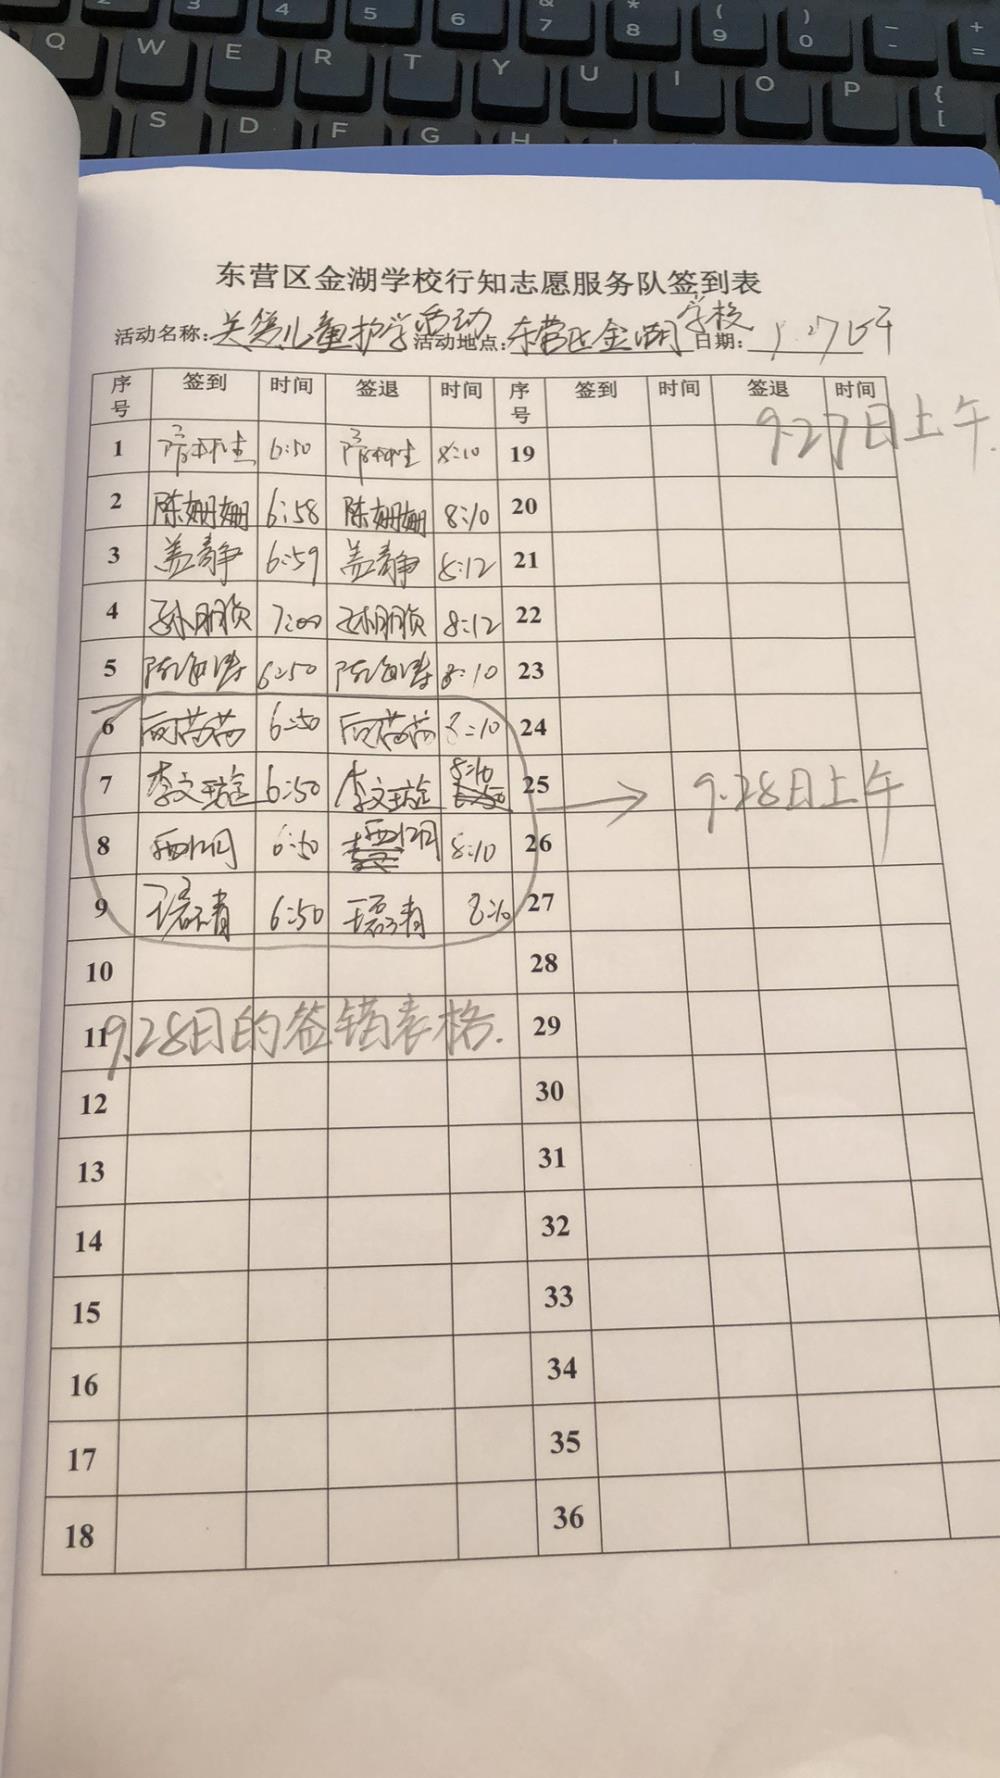 Q W E R T Y U I O P
S D F G H
东营区金湖学校行知志愿服务队签到表
活动名称:关爱儿童护学活动 活动地点:东营区金湖学校 日期:
序号 签到 时间 签退 时间 序号 签到 时间 签退 时间
9.27日上午.
1 6:50 8:10 19
2 陈姗姗 6:58 陈姗姗 8:10 20
3 盖静 6:59 盖静 8:12 21
4 孙朋贞 7:00 孙朋贞 8:12 22
5 陈海涛 6:50 陈海涛 8:10 23
6 6:50 8:10 24
7 李文瑄 6:50 李文瑄 8:10 25 9.28日上午
8 6:50 8:10 26
9 6:50 8:10 27
10 28
11 9.28日的签错表格. 29
12 30
13 31
14 32
15 33
16 34
17 35
18 36